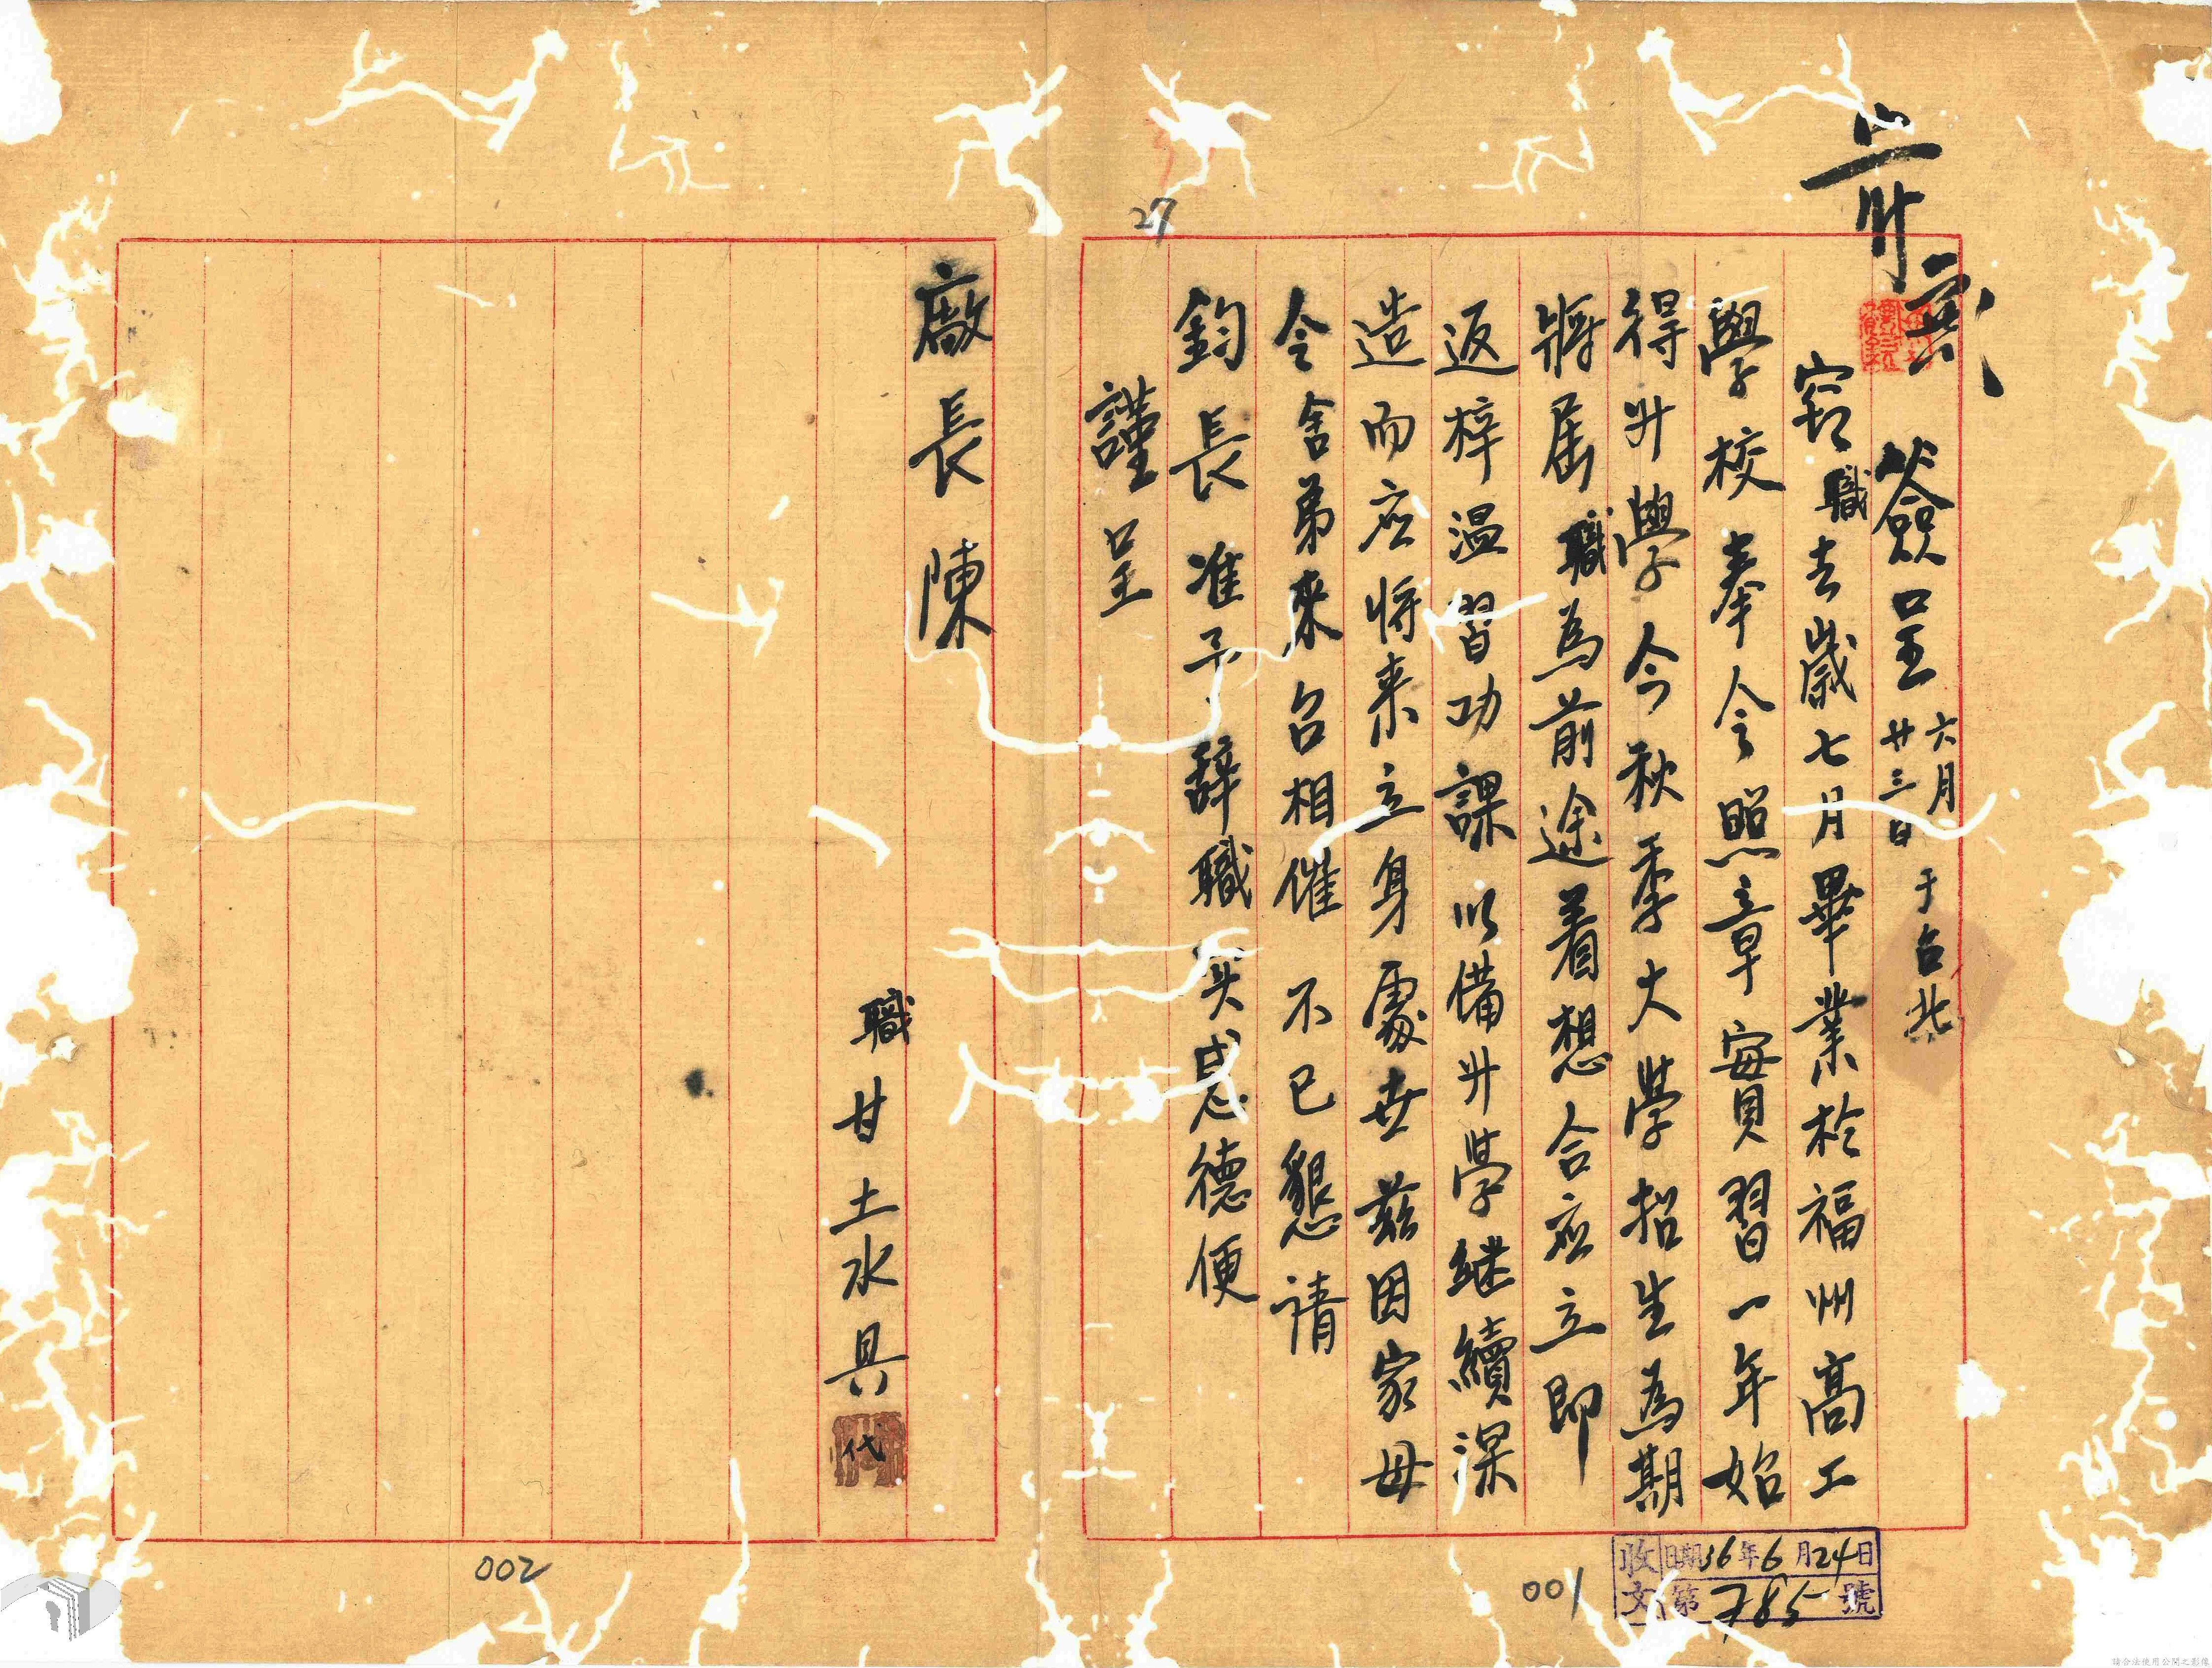 簽呈 六月廿三日 于台北
窃職去歲七月畢業於福州高工
學校奉令照章實習一年始
得升學今秋季大学招生為期
將屆職為前途着想合应立即
返梓温習功課以備升学继續深
造而应将来立身處世兹因家母
令舍弟來台相催不已懇请
鈞長准予辞職实感德便
謹呈
廠長陳
職甘土水具
代
27
001
002
收文 日期36年6月24日
第785號
請合法使用公開之影像